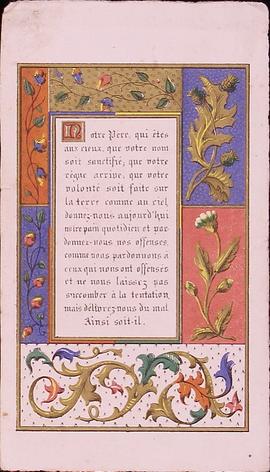 Notre Père, qui êtes
aux cieux, que votre nom
soit sanctifié, que votre
règne arrive, que votre
volonté soit faite sur
la terre comme au ciel,
donnez-nous aujourd'hui
notre pain quotidien et par
donnez-nous nos offenses,
comme nous pardonnons à
ceux qui nous ont offensés
et ne nous laissez pas
succomber à la tentation,
mais délivrez-nous du mal
Ainsi soit-il.